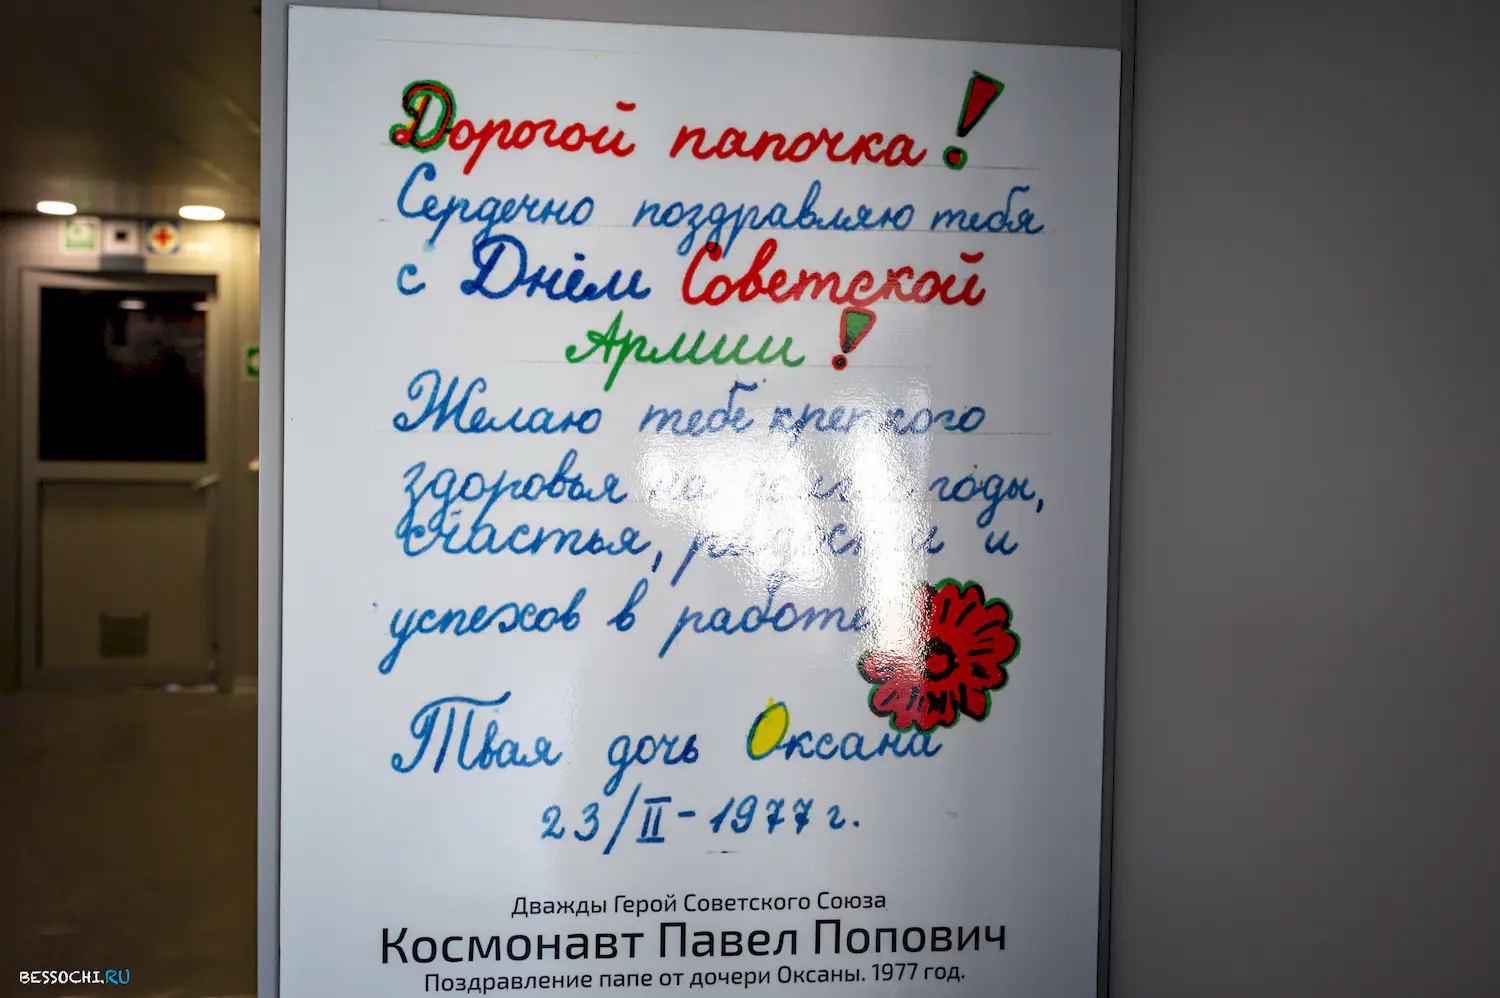 Дорогой папочка!
Сердечно поздравляю тебя
с Днём Советской
Армии!
Желаю тебе крепкого
здоровья на долгие годы,
счастья, радости и
успехов в работе
Твая дочь Оксана
23/II-1977г.
Дважды Герой Советского Союза
Космонавт Павел Попович
Поздравление папе от дочери Оксаны. 1977 год.
BESSOCHI.RU